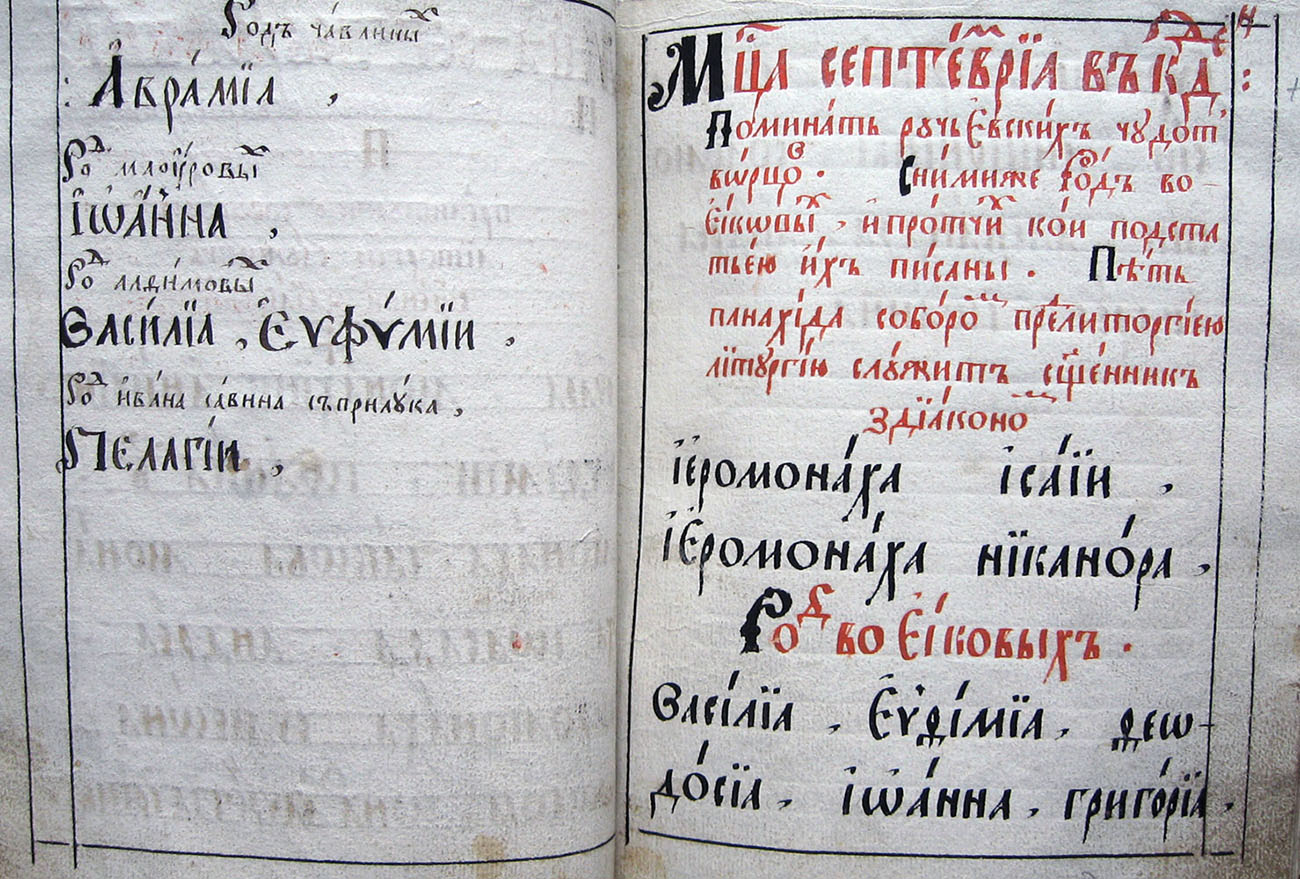 Родъ чавлины х
А҆бра́мїа ,
Род маѹ́ровых
І҆ѡа́нна ,
Род алди́мовых
Васи́лїа , Е҆ѵфѵ́мїи .
Род ива́на са́вина съприлу́ка ,
Пела́гїи ,
Мц҃а септе́мврїа въ к҃д
Помина́ть ручье́вскихъ чудот
во́рцов . Сни́миже ро́дъ во-
е́йковых , и҆про́тчих ко́и подста
тье́ю и́хъ пи́саны . Пѣ́ть
панахі́да собо́ром пред литоргі́ею
літургі́ю слу́житъ сщ҃е́нникъ
здїа́коном
і҆еромона́ха і҆са́їи ,
і҆еромона́ха нїкано́ра ,
Род вое́йковыхъ .
Васі́лїа , Е҆ѵѳі́мїа , ѳеѡ-
до́сїа , і҆ѡа́нна , григо́рїа .